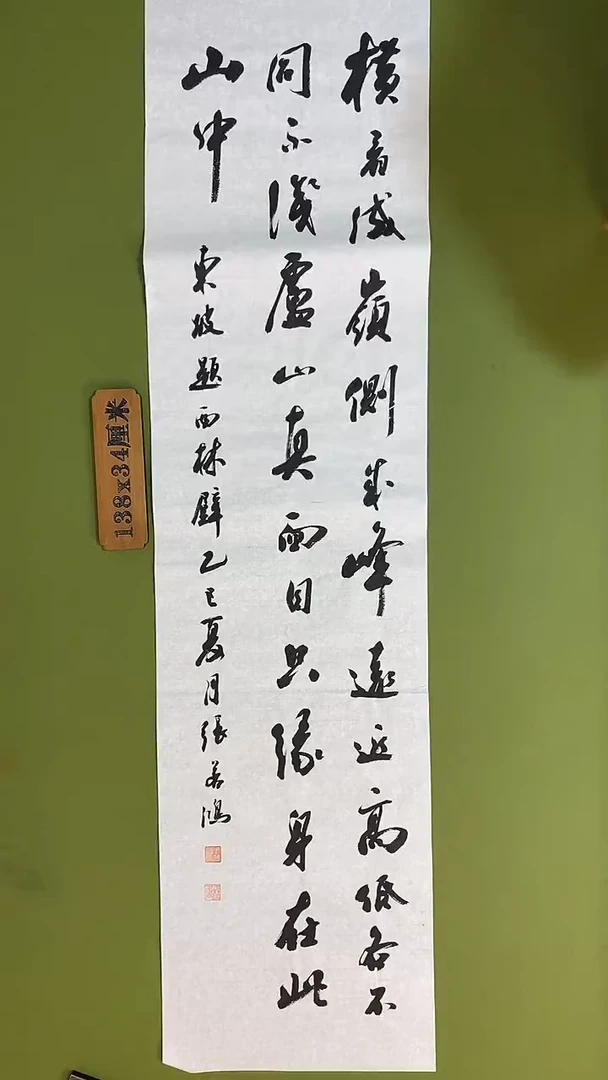 横看成嶺側成峰遠近高低各不
同不識廬山真面目只緣身在此
山中
東坡題西林壁乙巳夏月張若鴻
138x34厘米